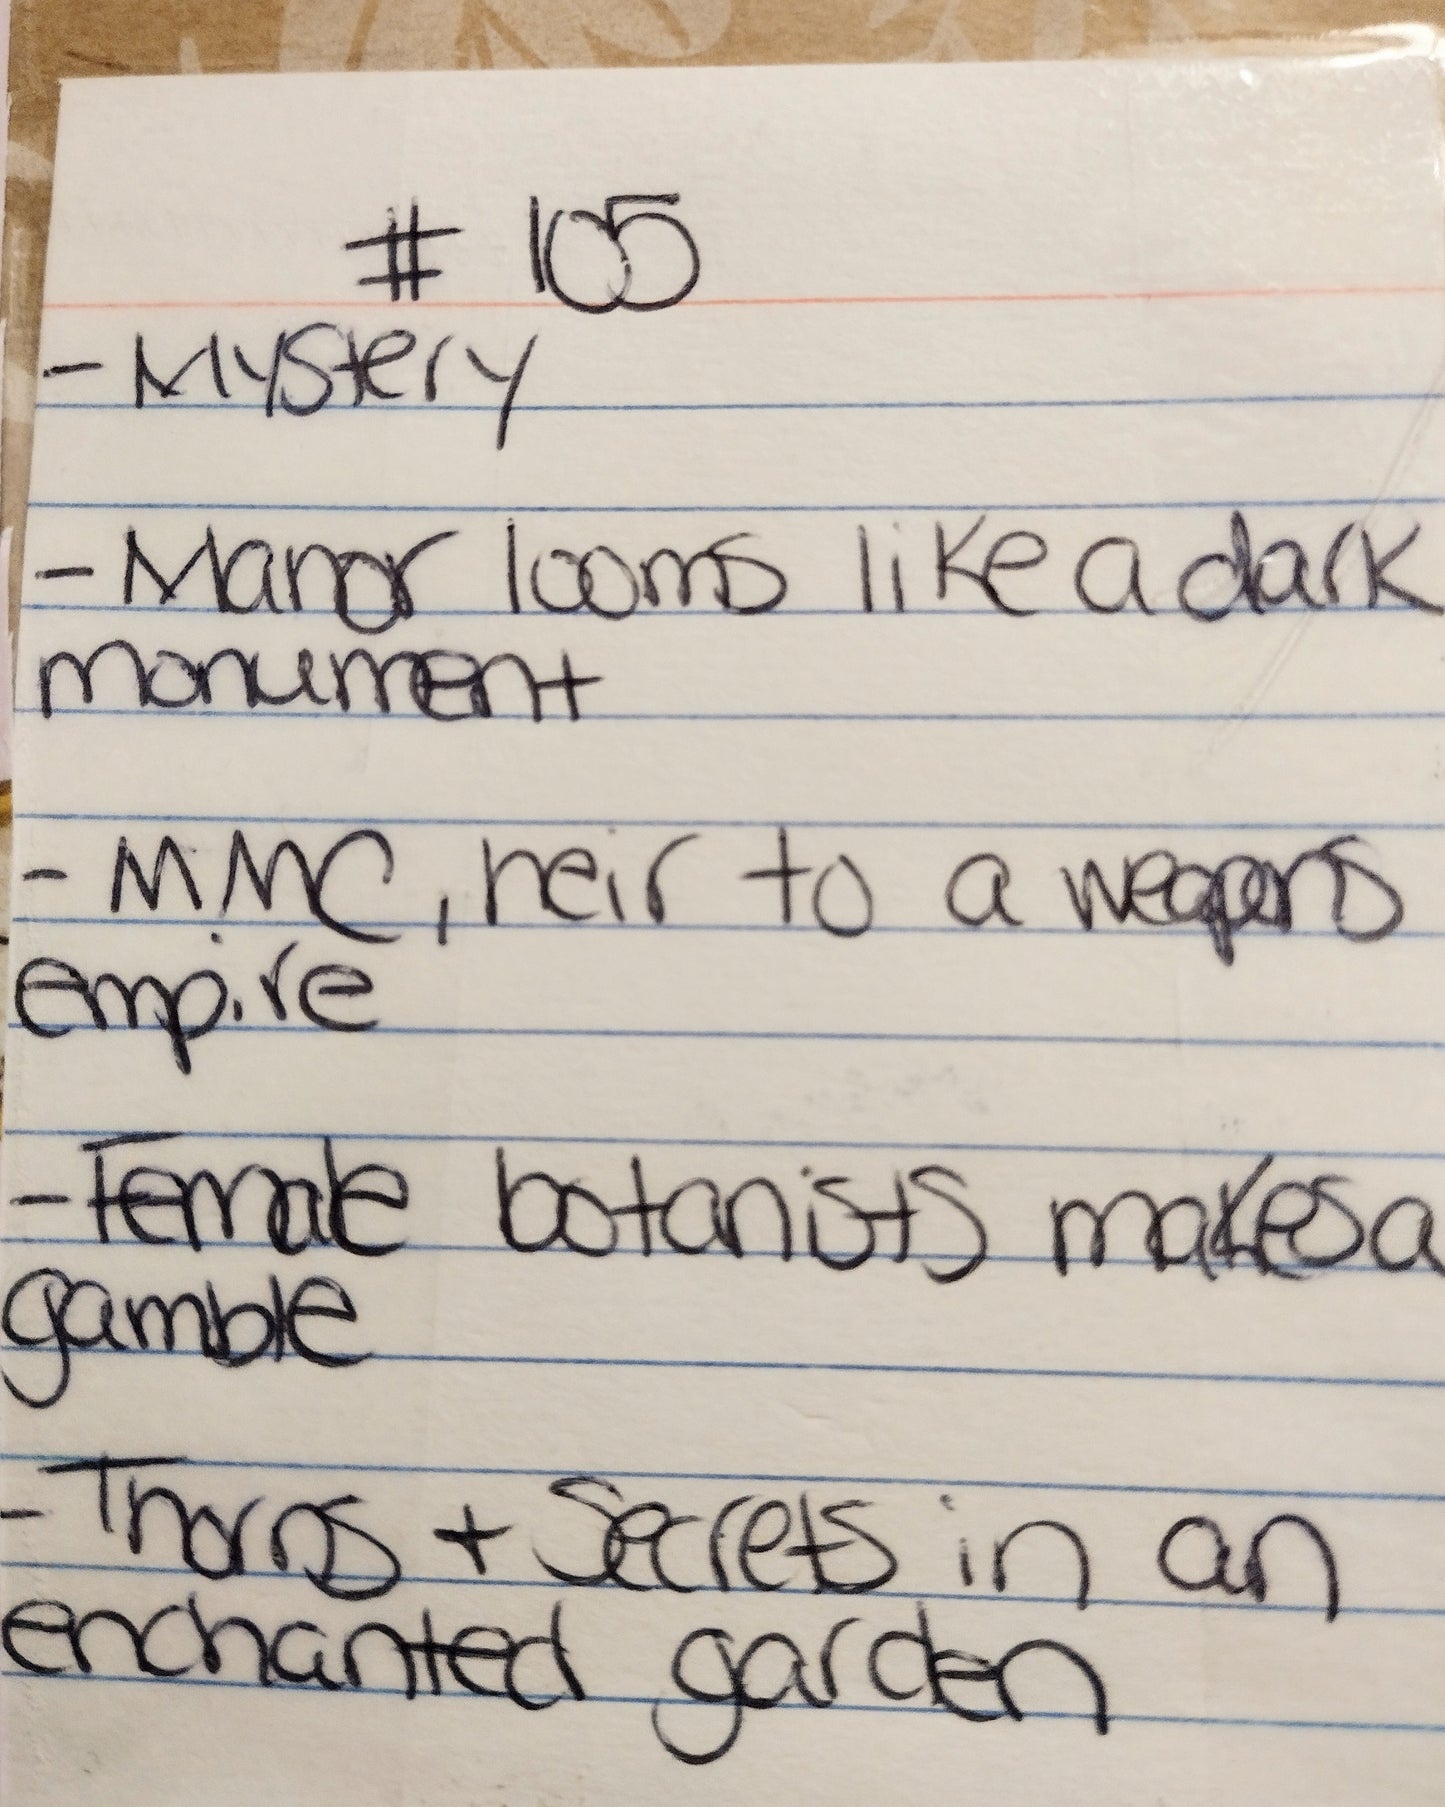 # 105
- Mystery
- Manor looms like a dark
monument
- MMC, heir to a weapons
empire
- Female botanists makes a
gamble
- Thorns + Secrets in an
enchanted garden